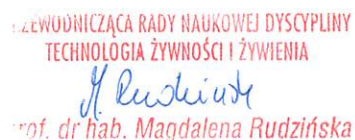 ZEWODNICZĄCA RADY NAUKOWEJ DYSCYPLINY
TECHNOLOGIA ŻYWNOŚCI I ŻYWIENIA
M. Rudzińska
rof. dr hab. Magdalena Rudzińska